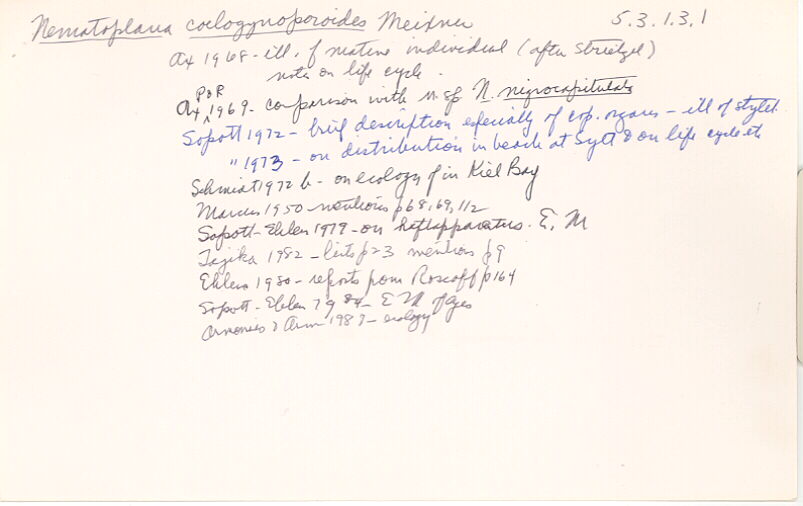 Nematoplana coelogynoporoides Meixner 5.3.1.3.1
Ax 1968 - ill. of mature individual (after Streitzel)
note on life cycle.
Ax P&R 1969 - comparison with n. sp N. nigrocapitulata
Sopott 1972 - brief description especially of cop. organs - ill of stylet.
" 1973 - on distribution in beach at Sylt & on life cycle etc
Schmidt 1972 b - on ecology of in Kiel Bay
Marcus 1950 - mentions p 68, 69, 112
Sopott-Ehlers 1979 - on haftapparatus. E. M
Tajika 1982 - lists p 23 mentions p 9
Ehlers 1980 - reports from Roscoff p 164
Sopott-Ehlers 1984 - E M of eyes
Armonies & Arm 1987 - ecology